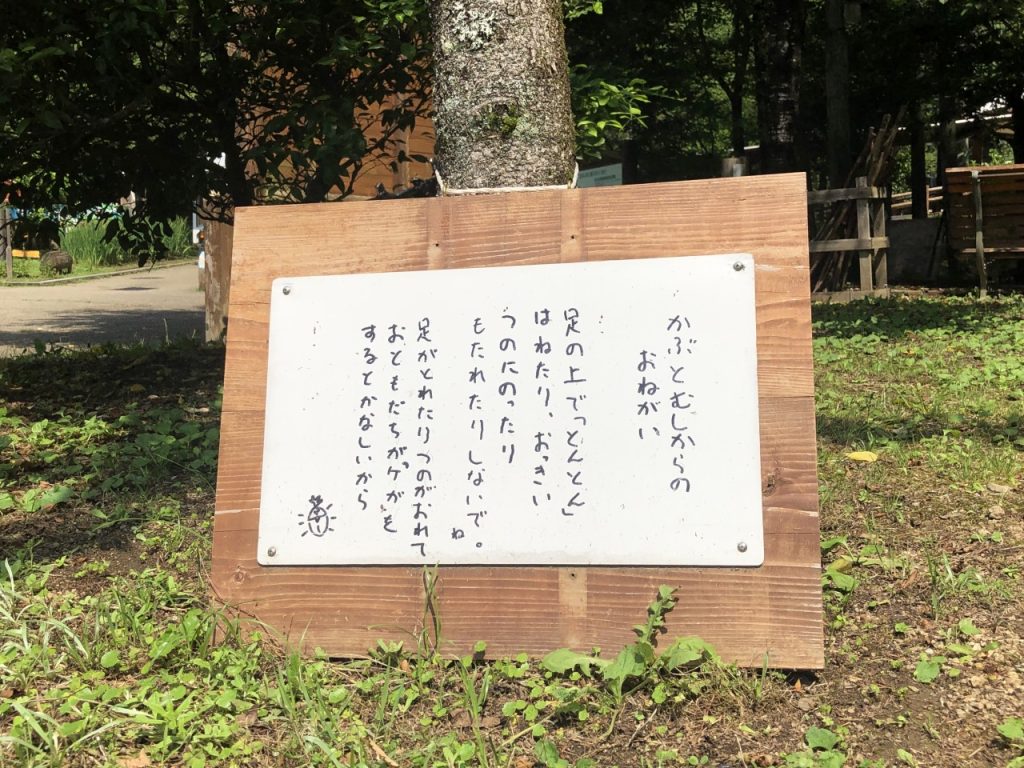 かぶとむしからの
おねがい
足の上で「とんとん」
はねたり、おっきい
つのにのったり
もたれたりしないで。
ね
足がとれたりつのがおれて
おともだちがケガを
するとかなしいから